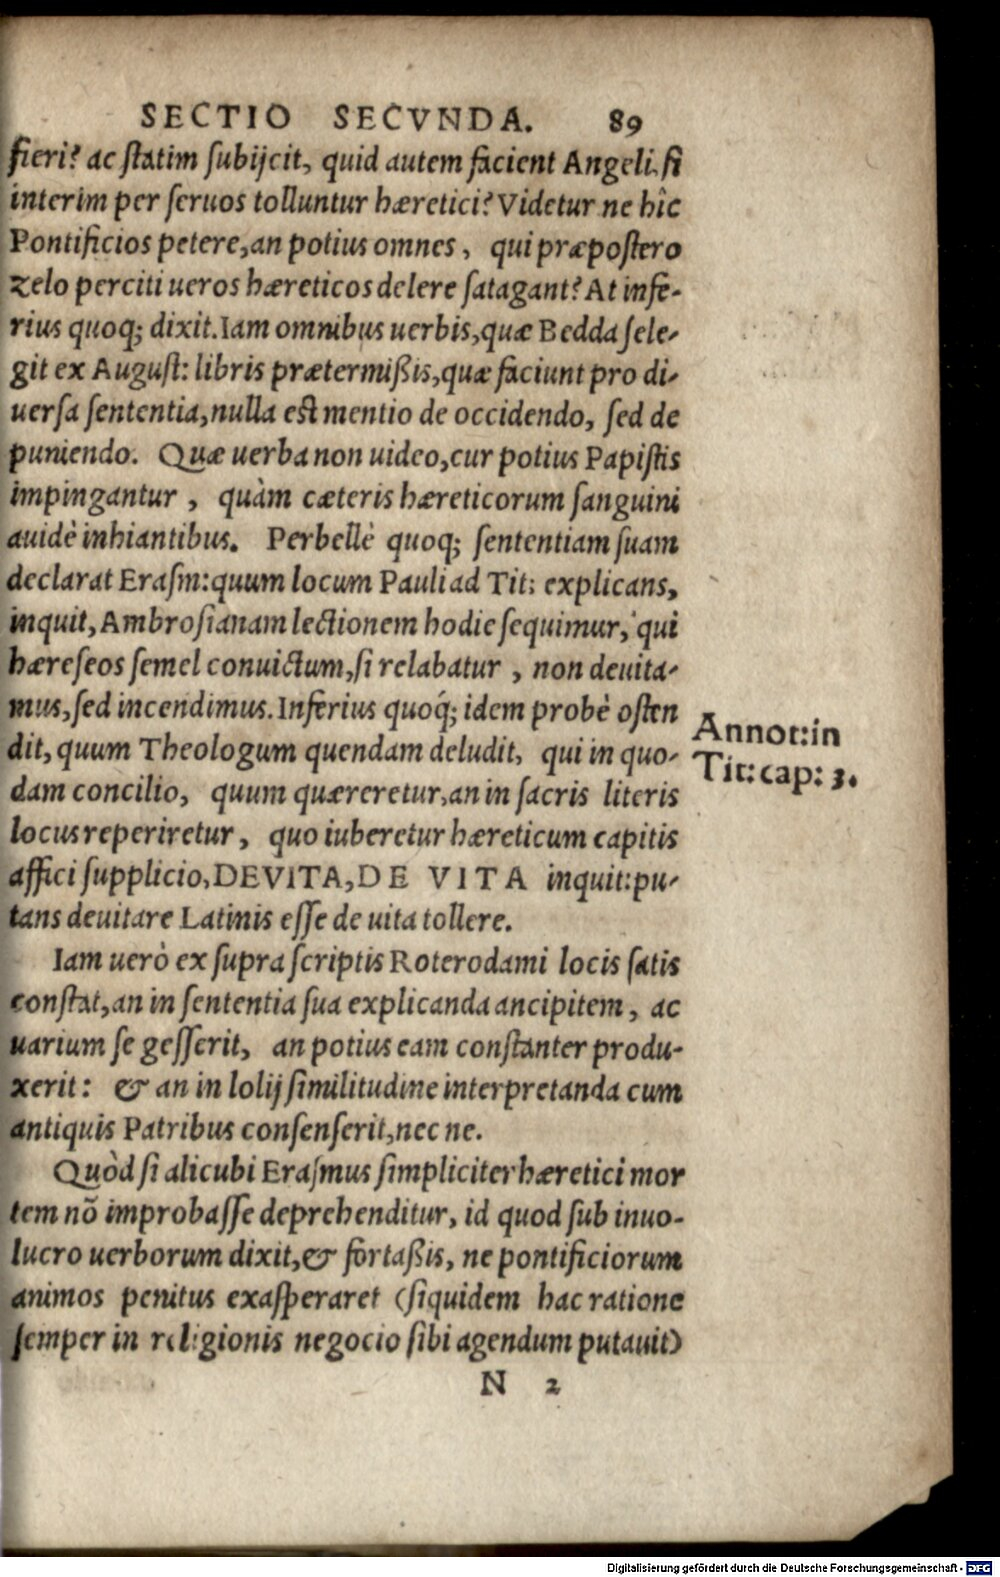 SECTIO SECVNDA. 89
fieri? ac ſtatim ſubijcit, quid autem facient Angeli, ſi
interim per ſeruos tolluntur hæretici? Videtur ne hîc
Pontificios petere, an potius omnes, qui præpoſtero
zelo perciti ueros hæreticos delere ſatagant? At infe-
rius quoq; dixit. Iam omnibus uerbis, quæ Bedda ſele-
git ex Auguſt: libris prætermißis, quæ faciunt pro di-
uerſa ſententia, nulla est mentio de occidendo, ſed de
puniendo. Quæ uerba non uideo, cur potius Papiſtis
impingantur, quàm cæteris hæreticorum ſanguini
auidè inhiantibus. Perbellè quoq; ſententiam ſuam
declarat Eraſm: quum locum Pauli ad Tit: explicans,
inquit, Ambroſianam lectionem hodie ſequimur, qui
hæreſeos ſemel conuictum, ſi relabatur, non deuita-
mus, ſed incendimus. Inferius quoq́; idem probè oſten
dit, quum Theologum quendam deludit, qui in quo-
dam concilio, quum quæreretur, an in ſacris literis
locus reperiretur, quo iuberetur hæreticum capitis
affici ſupplicio, DEVITA, DE VITA inquit: pu-
tans deuitare Latinis eſſe de uita tollere.
Annot: in
Tit: cap: 3.
Iam uerò ex ſupra ſcriptis Roterodami locis ſatis
conſtat, an in ſententia ſua explicanda ancipitem, ac
uarium ſe geſſerit, an potius eam conſtanter produ-
xerit: & an in lolij ſimilitudine interpretanda cum
antiquis Patribus conſenſerit, nec ne.
Quòd ſi alicubi Eraſmus ſimpliciter hæretici mor
tem nõ improbaſſe deprehenditur, id quod ſub inuo-
lucro uerborum dixit, & fortaßis, ne pontificiorum
animos penitus exaſperaret (ſiquidem hac ratione
ſemper in religionis negocio ſibi agendum putauit)
N 2
Digitalisierung gefördert durch die Deutsche Forschungsgemeinschaft - DFG